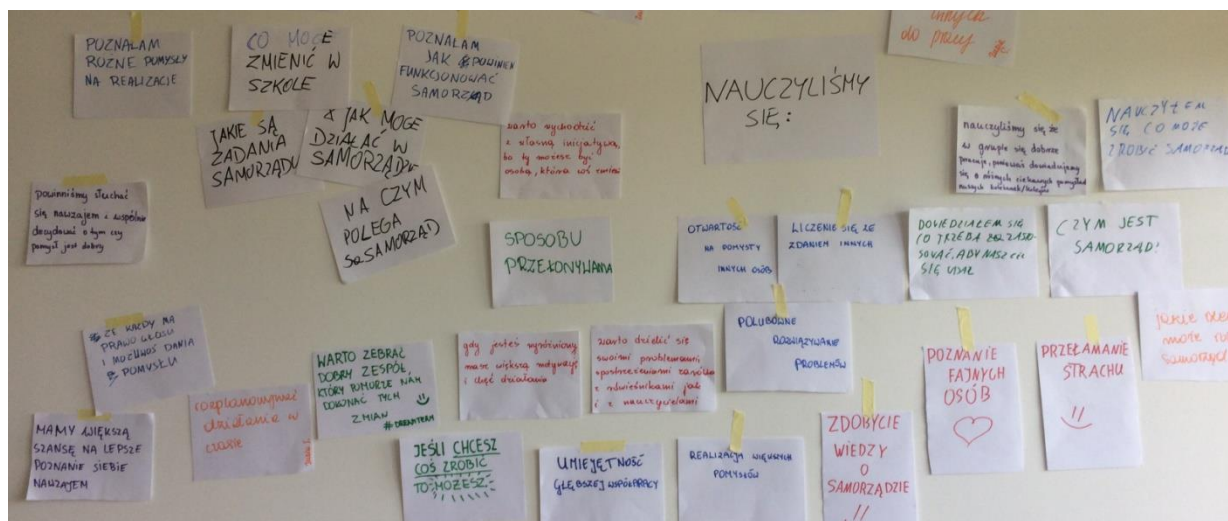 innych
do pracy
POZNAŁAM
RÓŻNE POMYSŁY
NA REALIZACJE
CO MOGE
ZMIENIĆ W
SZKOLE
POZNAŁAM
JAK POWINIEN
FUNKCJONOWAĆ
SAMORZĄD
JAKIE SĄ
ZADANIA
SAMORZĄDU
JAK MOGE
DZIAŁAĆ W
SAMORZĄDZIE
NA CZYM
POLEGA
SAMORZĄD
warto wychodzić
z własną inicjatywą,
bo ty możesz być
osobą, która coś zmieni
NAUCZYLIŚMY
SIĘ:
nauczyliśmy się że
w grupie się dobrze
pracuje, ponieważ dowiadujemy
się o różnych ciekawych pomysłach
naszych koleżanek/kolegów
NAUCZYŁEM
SIĘ CO MOŻE
ZROBIĆ SAMORZĄD
powinniśmy słuchać
się nawzajem i wspólnie
decydować o tym czy
pomysł jest dobry
SPOSOBU
PRZEKONYWANIA
OTWARTOŚĆ
NA POMYSŁY
INNYCH OSÓB
LICZENIE SIĘ ZE
ZDANIEM INNYCH
DOWIEDZIAŁEM SIĘ
CO TRZEBA
ABY
SIĘ
CZYM JEST
SAMORZĄD!
ŻE KAŻDY MA
PRAWO GŁOSU
I MOŻLIWOŚĆ DANIA
POMYSŁU
WARTO ZEBRAĆ
DOBRY ZESPÓŁ,
KTÓRY POMOŻE NAM
DOKONAĆ TYCH
ZMIAN
gdy jesteś wyróżniony
masz większą motywację
i chęć działania
warto dzielić się
swoimi problemami,
spostrzeżeniami zarówno
z rówieśnikami jak
i z nauczycielami
POLUBOWNE
ROZWIĄZYWANIE
PROBLEMÓW
POZNANIE
FAJNYCH
OSÓB
PRZEŁAMANIE
STRACHU
jakie
może
samorząd
MAMY WIĘKSZĄ
SZANSĘ NA LEPSZE
POZNANIE SIEBIE
NAWZAJEM
rozplanowywać
działania w
czasie
JEŚLI CHCESZ
COŚ ZROBIĆ
TO MOŻESZ
UMIEJĘTNOŚĆ
GŁĘBSZEJ WSPÓŁPRACY
REALIZACJA WIĘKSZYCH
POMYSŁÓW
ZDOBYCIE
WIEDZY
O
SAMORZĄDZIE
!!